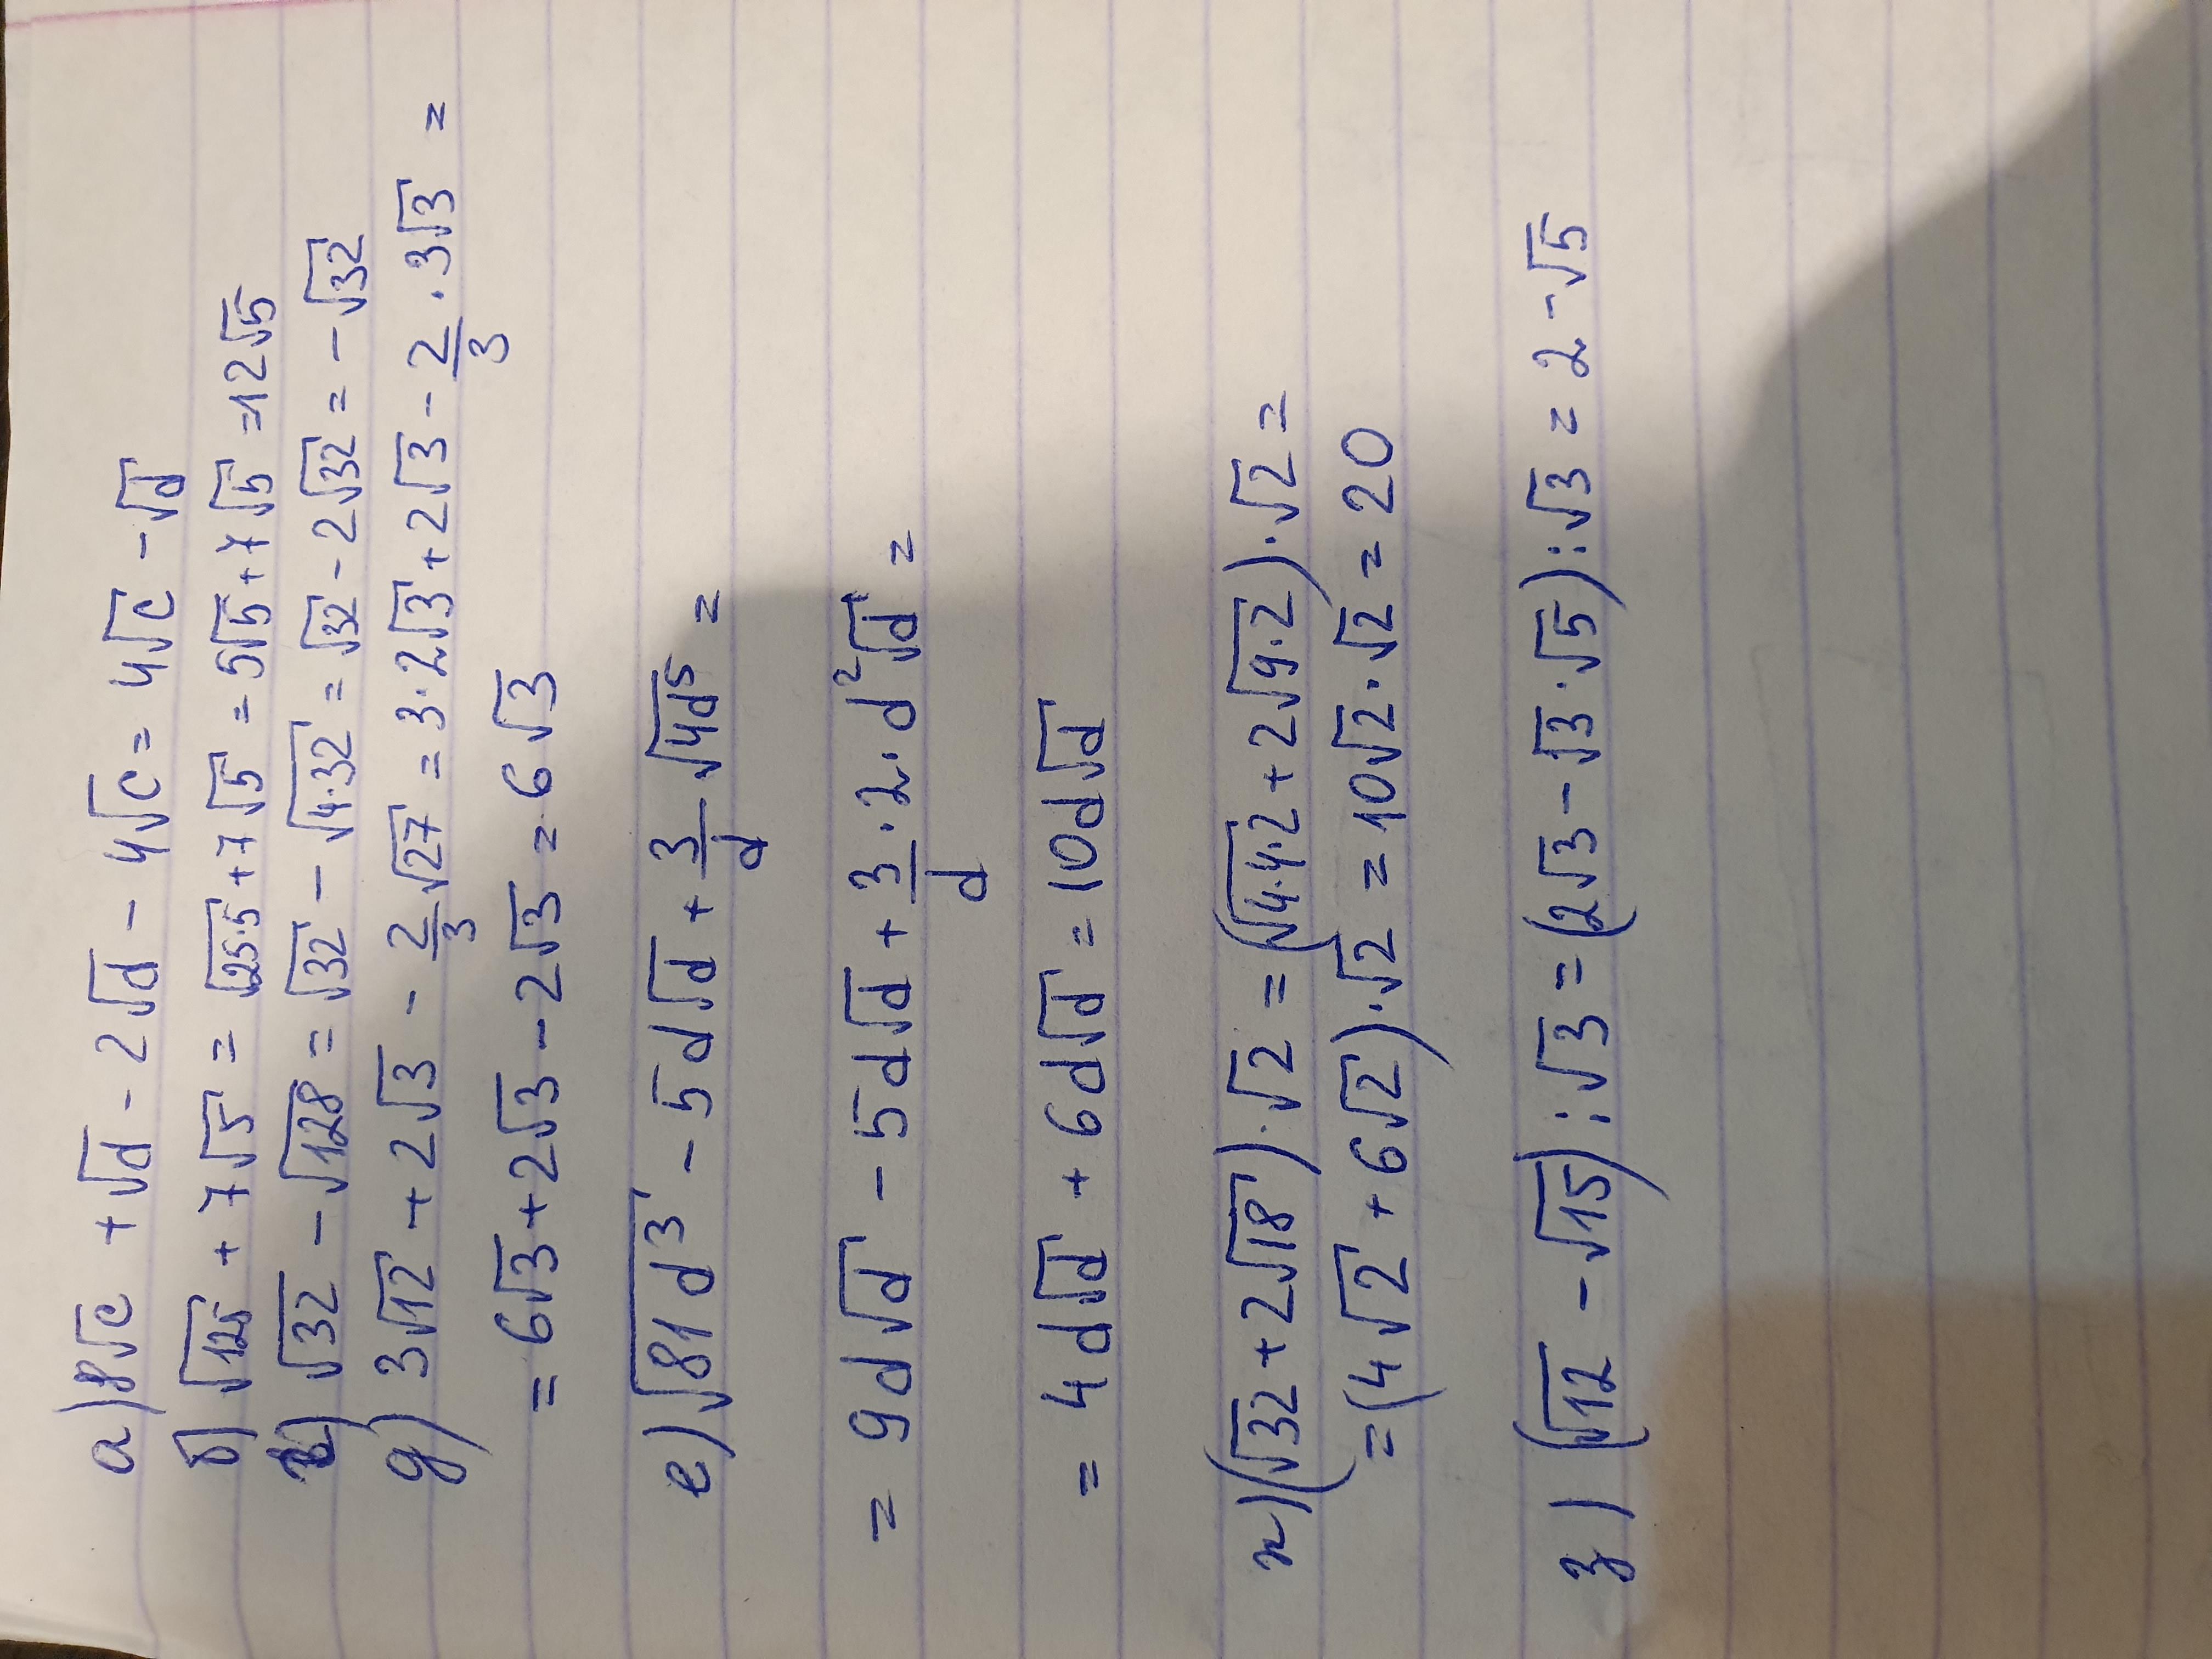 а) 8√c + √d - 2√d - 4√c = 4√c - √d
б) √125 + 7√5 = √25·5 + 7√5 = 5√5 + 7√5 = 12√5
в) √32 - √128 = √32 - √4·32 = √32 - 2√32 = -√32
g) 3√12 + 2√3 - 2/3 √27 = 3·2√3 + 2√3 - 2/3 · 3√3 =
= 6√3 + 2√3 - 2√3 = 6√3
е) √81d³ - 5d√d + 3/d √4d⁵ =
= 9d√d - 5d√d + 3/d · 2 · d²√d =
= 4d√d + 6d√d = 10d√d
(√32 + 2√18)·√2 = (√4·4·2 + 2√9·2)·√2 =
= (4√2 + 6√2)·√2 = 10√2·√2 = 20
з) (√12 - √15):√3 = (2√3 - √3·√5):√3 = 2 - √5